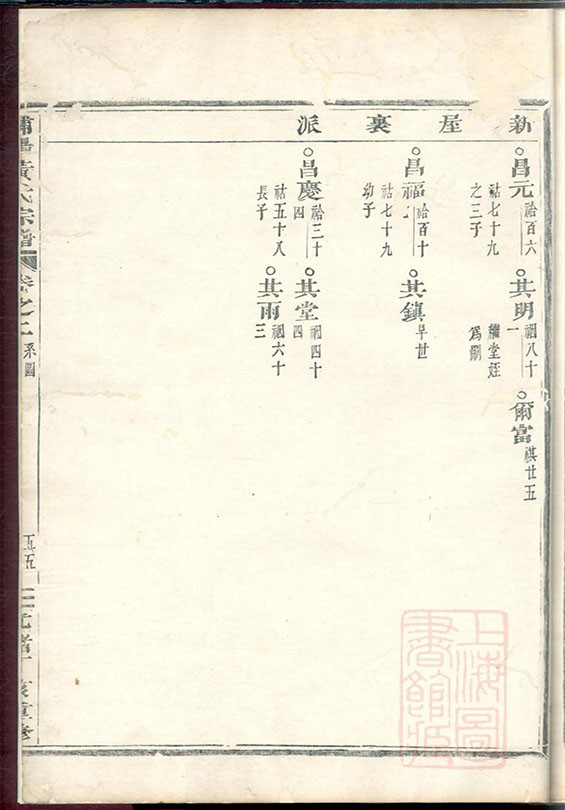 新屋裏派
昌元
祫百六
祜七十九
之三子
共明
祻八十
一
繼堂姪
爲嗣
爾富
祺廿五
昌福
祫百十
祜七十九
幼子
共鎮
早世
昌慶
祫三十
四
祜五十八
長子
共堂
祻四十
四
共雨
祻六十
三
黃氏宗譜
卷之二
系圖
五五
上海圖
書館藏